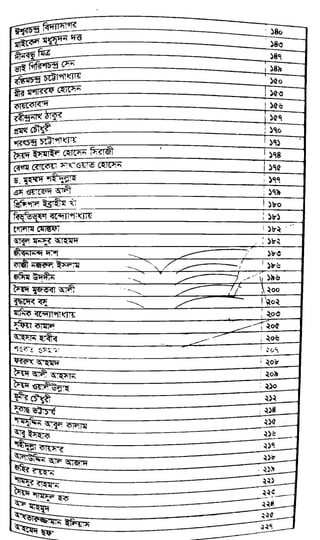 ঈশ্বরচন্দ্র বিদ্যাসাগর ১৪০
মাইকেল মধুসূদন দত্ত ১৪৩
দীনবন্ধু মিত্র ১৪৭
ভাই গিরিশচন্দ্র সেন ১৪৯
বঙ্কিমচন্দ্র চট্টোপাধ্যায় ১৫০
মীর মশাররফ হোসেন ১৫৩
কায়কোবাদ ১৫৬
রবীন্দ্রনাথ ঠাকুর ১৫৭
প্রমথ চৌধুরী ১৭০
শরৎচন্দ্র চট্টোপাধ্যায় ১৭১
সৈয়দ ইসমাইল হোসেন সিরাজী ১৭৪
বেগম রোকেয়া সাখাওয়াত হোসেন ১৭৫
ড. মুহম্মদ শহীদুল্লাহ ১৭৭
এস ওয়াজেদ আলী ১৭৯
প্রিন্সিপাল ইব্রাহীম খাঁ ১৮০
বিভূতিভূষণ বন্দ্যোপাধ্যায় ১৮১
গোলাম মোস্তফা ১৮২
আবুল মনসুর আহমদ ১৮২
জীবনানন্দ দাশ ১৮৩
কাজী নজরুল ইসলাম ১৮৬
জসিম উদদীন ১৯৬
সৈয়দ মুজতবা আলী ২০০
বুদ্ধদেব বসু ২০২
মানিক বন্দ্যোপাধ্যায় ২০৩
সুফিয়া কামাল ২০৫
আহসান হাবীব ২০৬
শওকত ওসমান ২০৭
ফররুখ আহমদ ২০৮
সৈয়দ আলী আহসান ২০৯
সৈয়দ ওয়ালীউল্লাহ ২১০
মুনীর চৌধুরী ২১২
সুকান্ত ভট্টাচার্য ২১৪
শামসুদ্দিন আবুল কালাম ২১৫
আবু ইসহাক ২১৬
শহীদুল্লা কায়সার ২১৭
আলাউদ্দিন আল আজাদ ২১৮
জহির রায়হান ২১৯
শামসুর রাহমান ২২১
সৈয়দ শামসুল হক
আল মাহমুদ ২২৪
আখতারুজ্জামান ইলিয়াস ২২৫
আহমেদ ছফা ২২৭